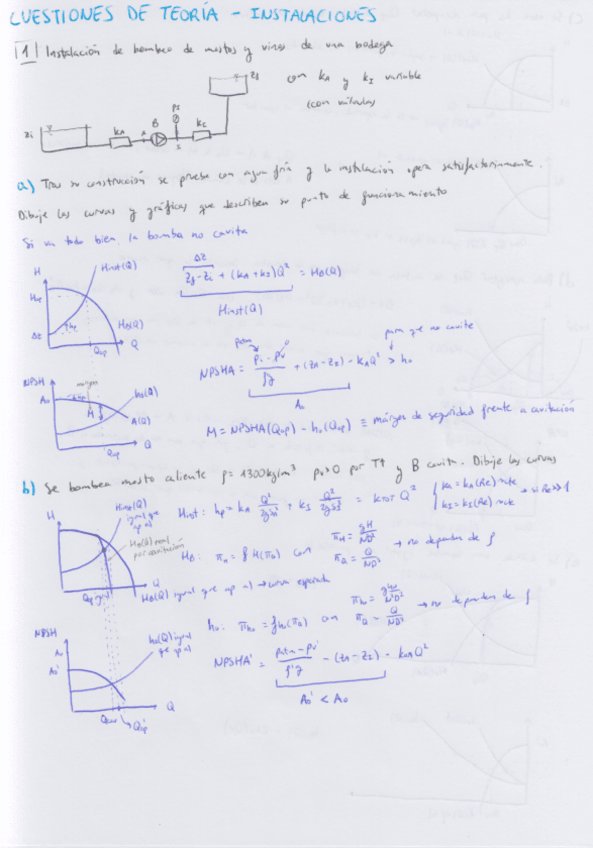 CUESTIONES DE TEORÍA - INSTALACIONES
1 Instalación de bombeo de mostos y vinos de una bodega
con kA y kI variable
(con válvulas)
zf
PI
B
zi
kA
A
I
kI
a) Tras su construcción se prueba con agua fría y la instalación opera satisfactoriamente.
Dibuje las curvas y gráficas que describen su punto de funcionamiento
Si va todo bien, la bomba no cavita
H
Hinst(Q)
Hop
Δz
hp
HB(Q)
Qop
Q
Δz
zf - zi + (kA + kI)Q² = HB(Q)
Hinst(Q)
NPSH
A0
margen
M
h0(Q)
A(Q)
Qop
Q
patm
para que no cavite
NPSHA = pi - pv / ρg + (zA - zE) - kAQ² > h0
A0
M = NPSHA(Qop) - h0(Qop) ≡ márgen de seguridad frente a cavitación
b) Se bombea mosto caliente ρ = 1300 kg/m³ pv>0 por T↑ y B cavita. Dibuje las curvas
H
Hinst(Q) igual que ap a)
HB(Q) real por cavitación
Q
HB(Q) igual que ap a) → curva esperada
Hinst: hp = kA Q²/2gS² + kI Q²/2gS² = kTOT Q²
kA = kA(Re) ≈ cte
kI = kI(Re) ≈ cte
→ si Re>>1
HB: πH = f H(πQ) con
πH = gH/N²D²
πQ = Q/ND³
→ no depende de ρ
h0: πh0 = fh0(πQ) con
πh0 = gh0/N²D²
πQ = Q/ND³
→ no depende de ρ
NPSH
A0
A0'
h0(Q) igual que ap a)
Q
Qcav
Qop'
NPSHA' = patm - pv' / ρ'g - (zA - zE) - kAQ²
A0' < A0